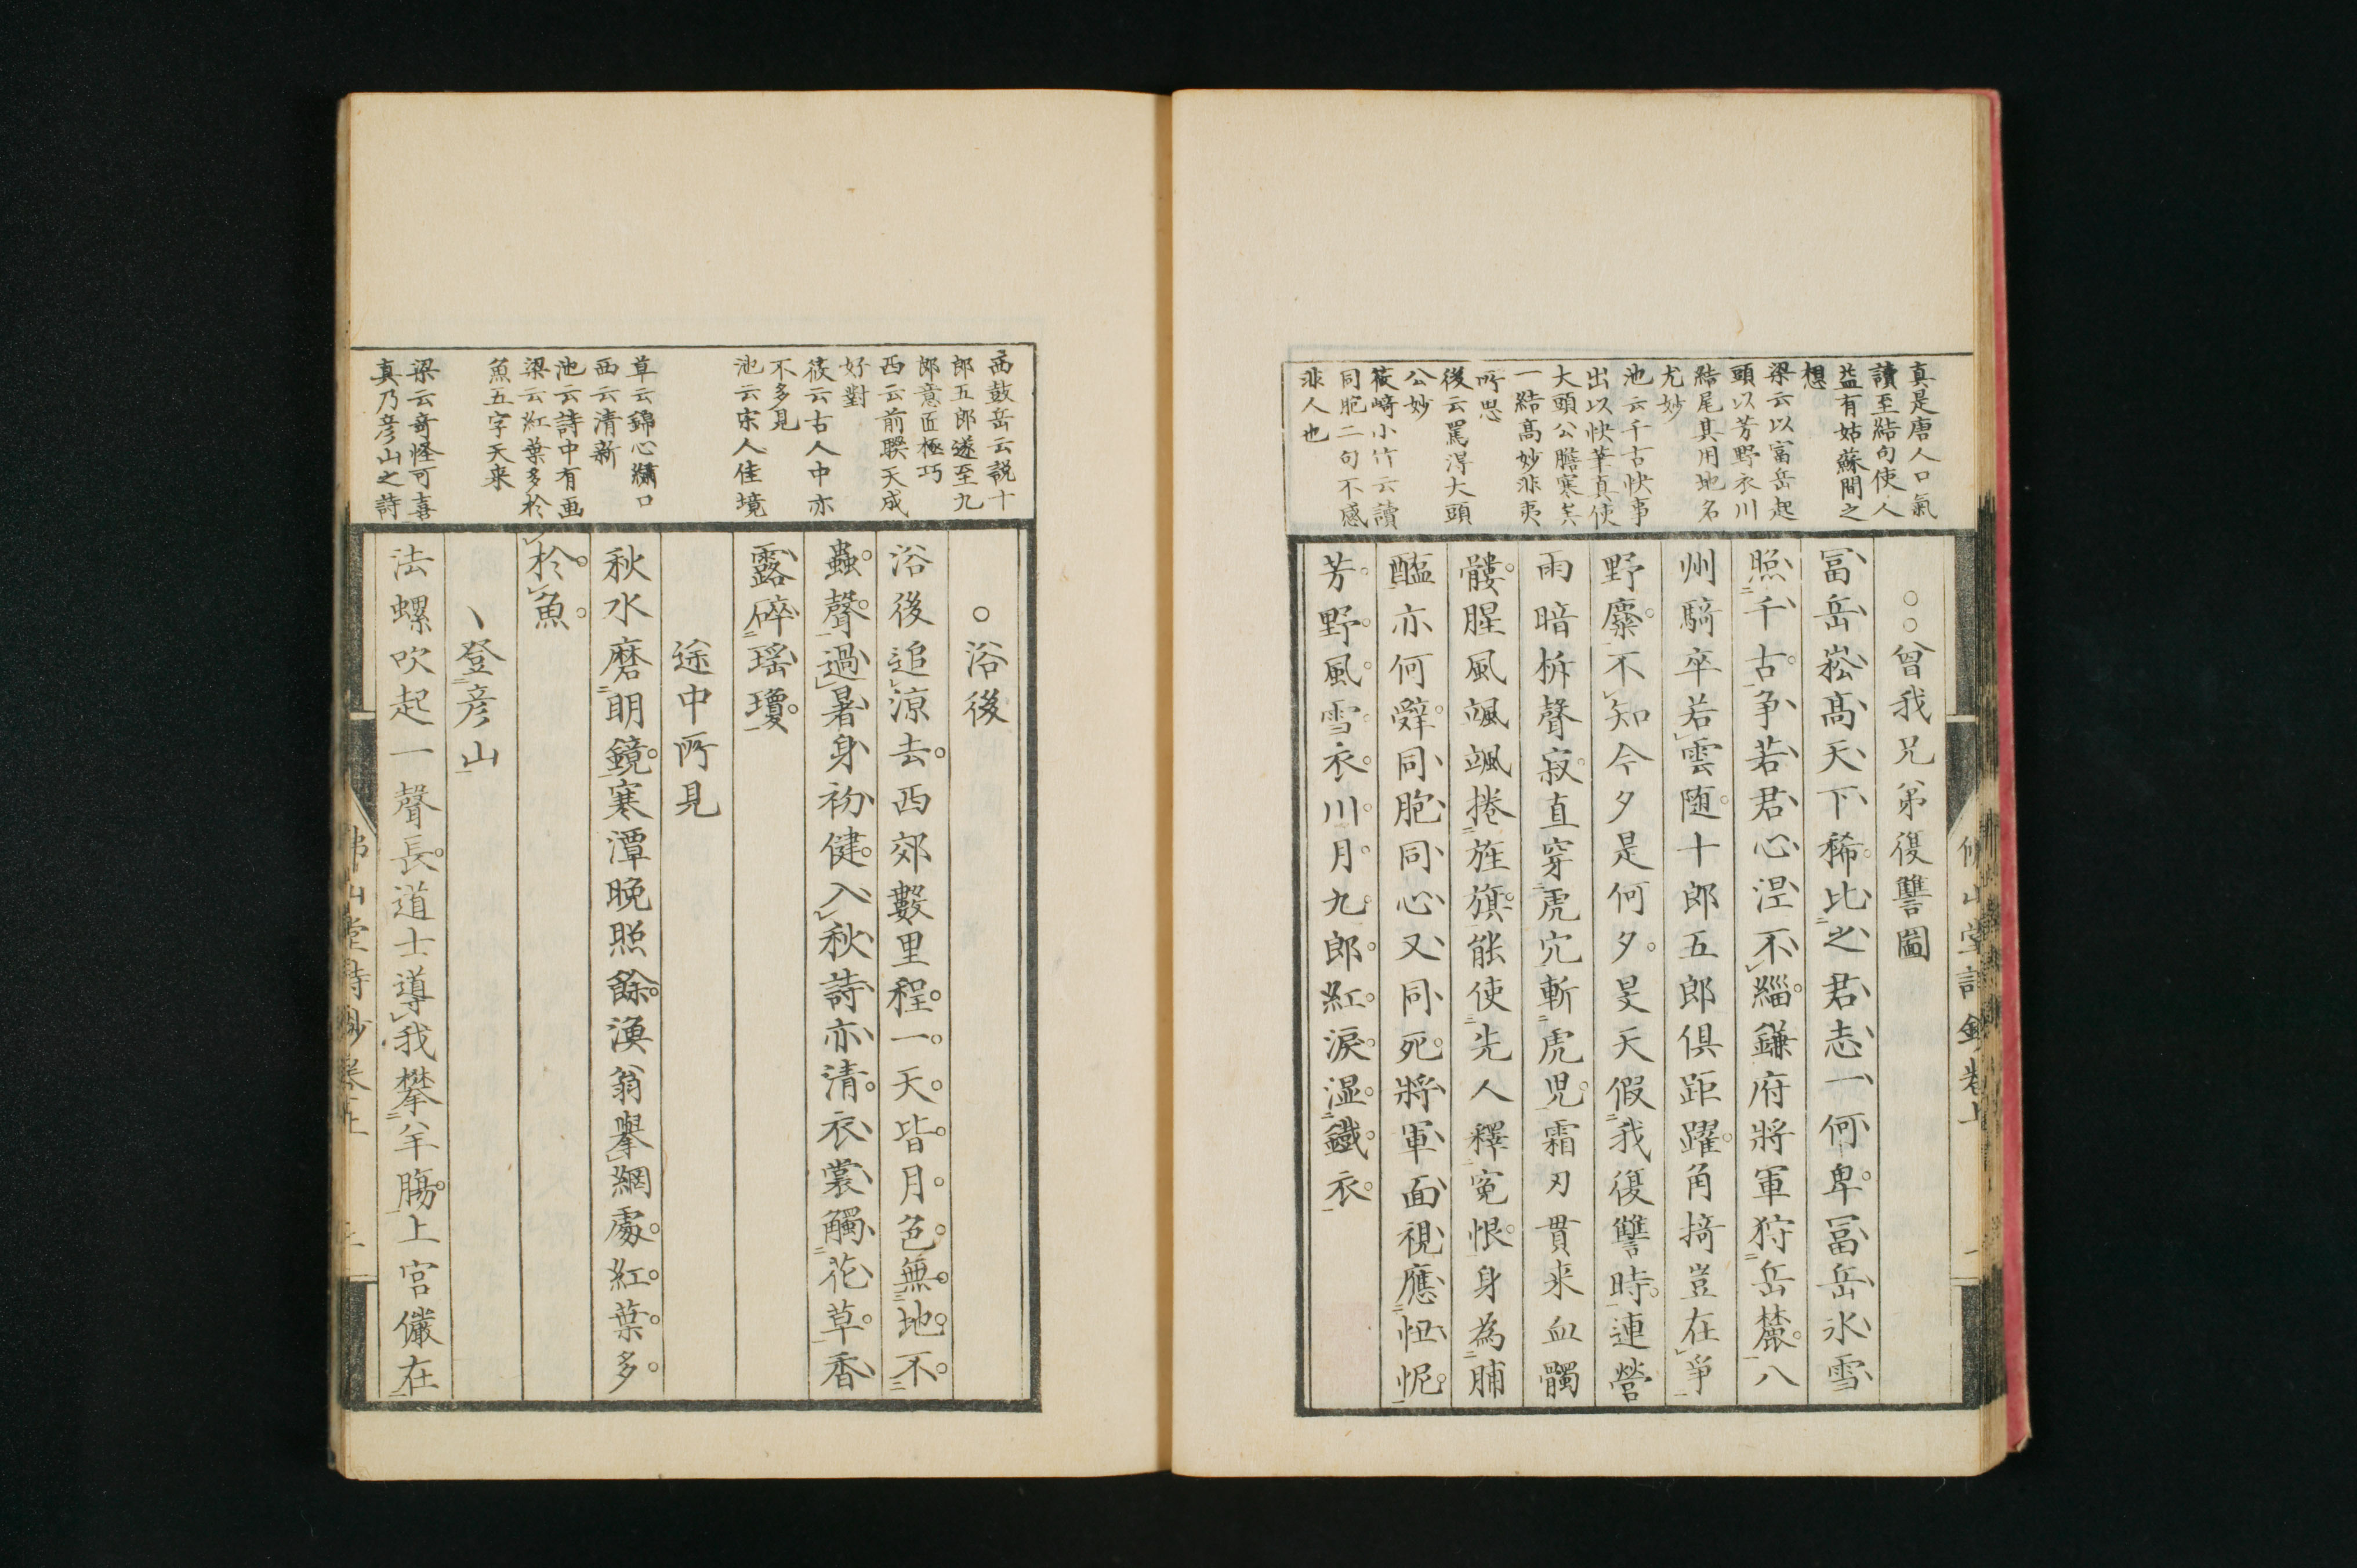 真是唐人口氣
讀至結句使人
益有姑蘇間之
想
梁云以富岳起
頭以芳野衣川
結尾具用地名
尤妙
池云千古快事
出以快筆真使
大頭公膽寒矣
一結高妙非夷
所思
後云罵得大頭
公妙
筱崎小竹云讀
同胞二句不感
非人也
曾我兄弟復讐圖
冨岳崧高天下稀比之君志一何卑冨岳氷雪
照千古争若君心涅不緇鎌府將軍狩岳麓八
州騎卒若雲随十郎五郎倶距躍角掎豈在爭
野麋不知今夕是何夕旻天假我復讐時連營
雨暗柝聲寂直穿虎穴斬虎児霜刃貫来血髑
髏腥風颯颯捲旌旗能使先人釋寃恨身為脯
醢亦何辤同胞同心又同死將軍面視應忸怩
芳野風雪衣川月九郎紅淚湿鐵衣
西鼓岳云説十
郎五郎遂至九
郎意匠極巧
西云前聯天成
好對
筱云古人中亦
不多見
池云宋人佳境
草云錦心繍口
西云清新
池云詩中有画
梁云紅葉多於
魚五字天来
梁云竒怪可喜
真乃彦山之詩
浴後
浴後追涼去西郊數里程一天皆月色無地不
蟲聲過暑身初健入秋詩亦清衣裳觸花草香
露碎瑶瓊
途中所見
秋水磨明鏡寒潭晚照餘漁翁擧網處紅葉多
於魚
登彦山
法螺吹起一聲長道士導我攀羊膓上宮儼在
山堂詩鈔卷上